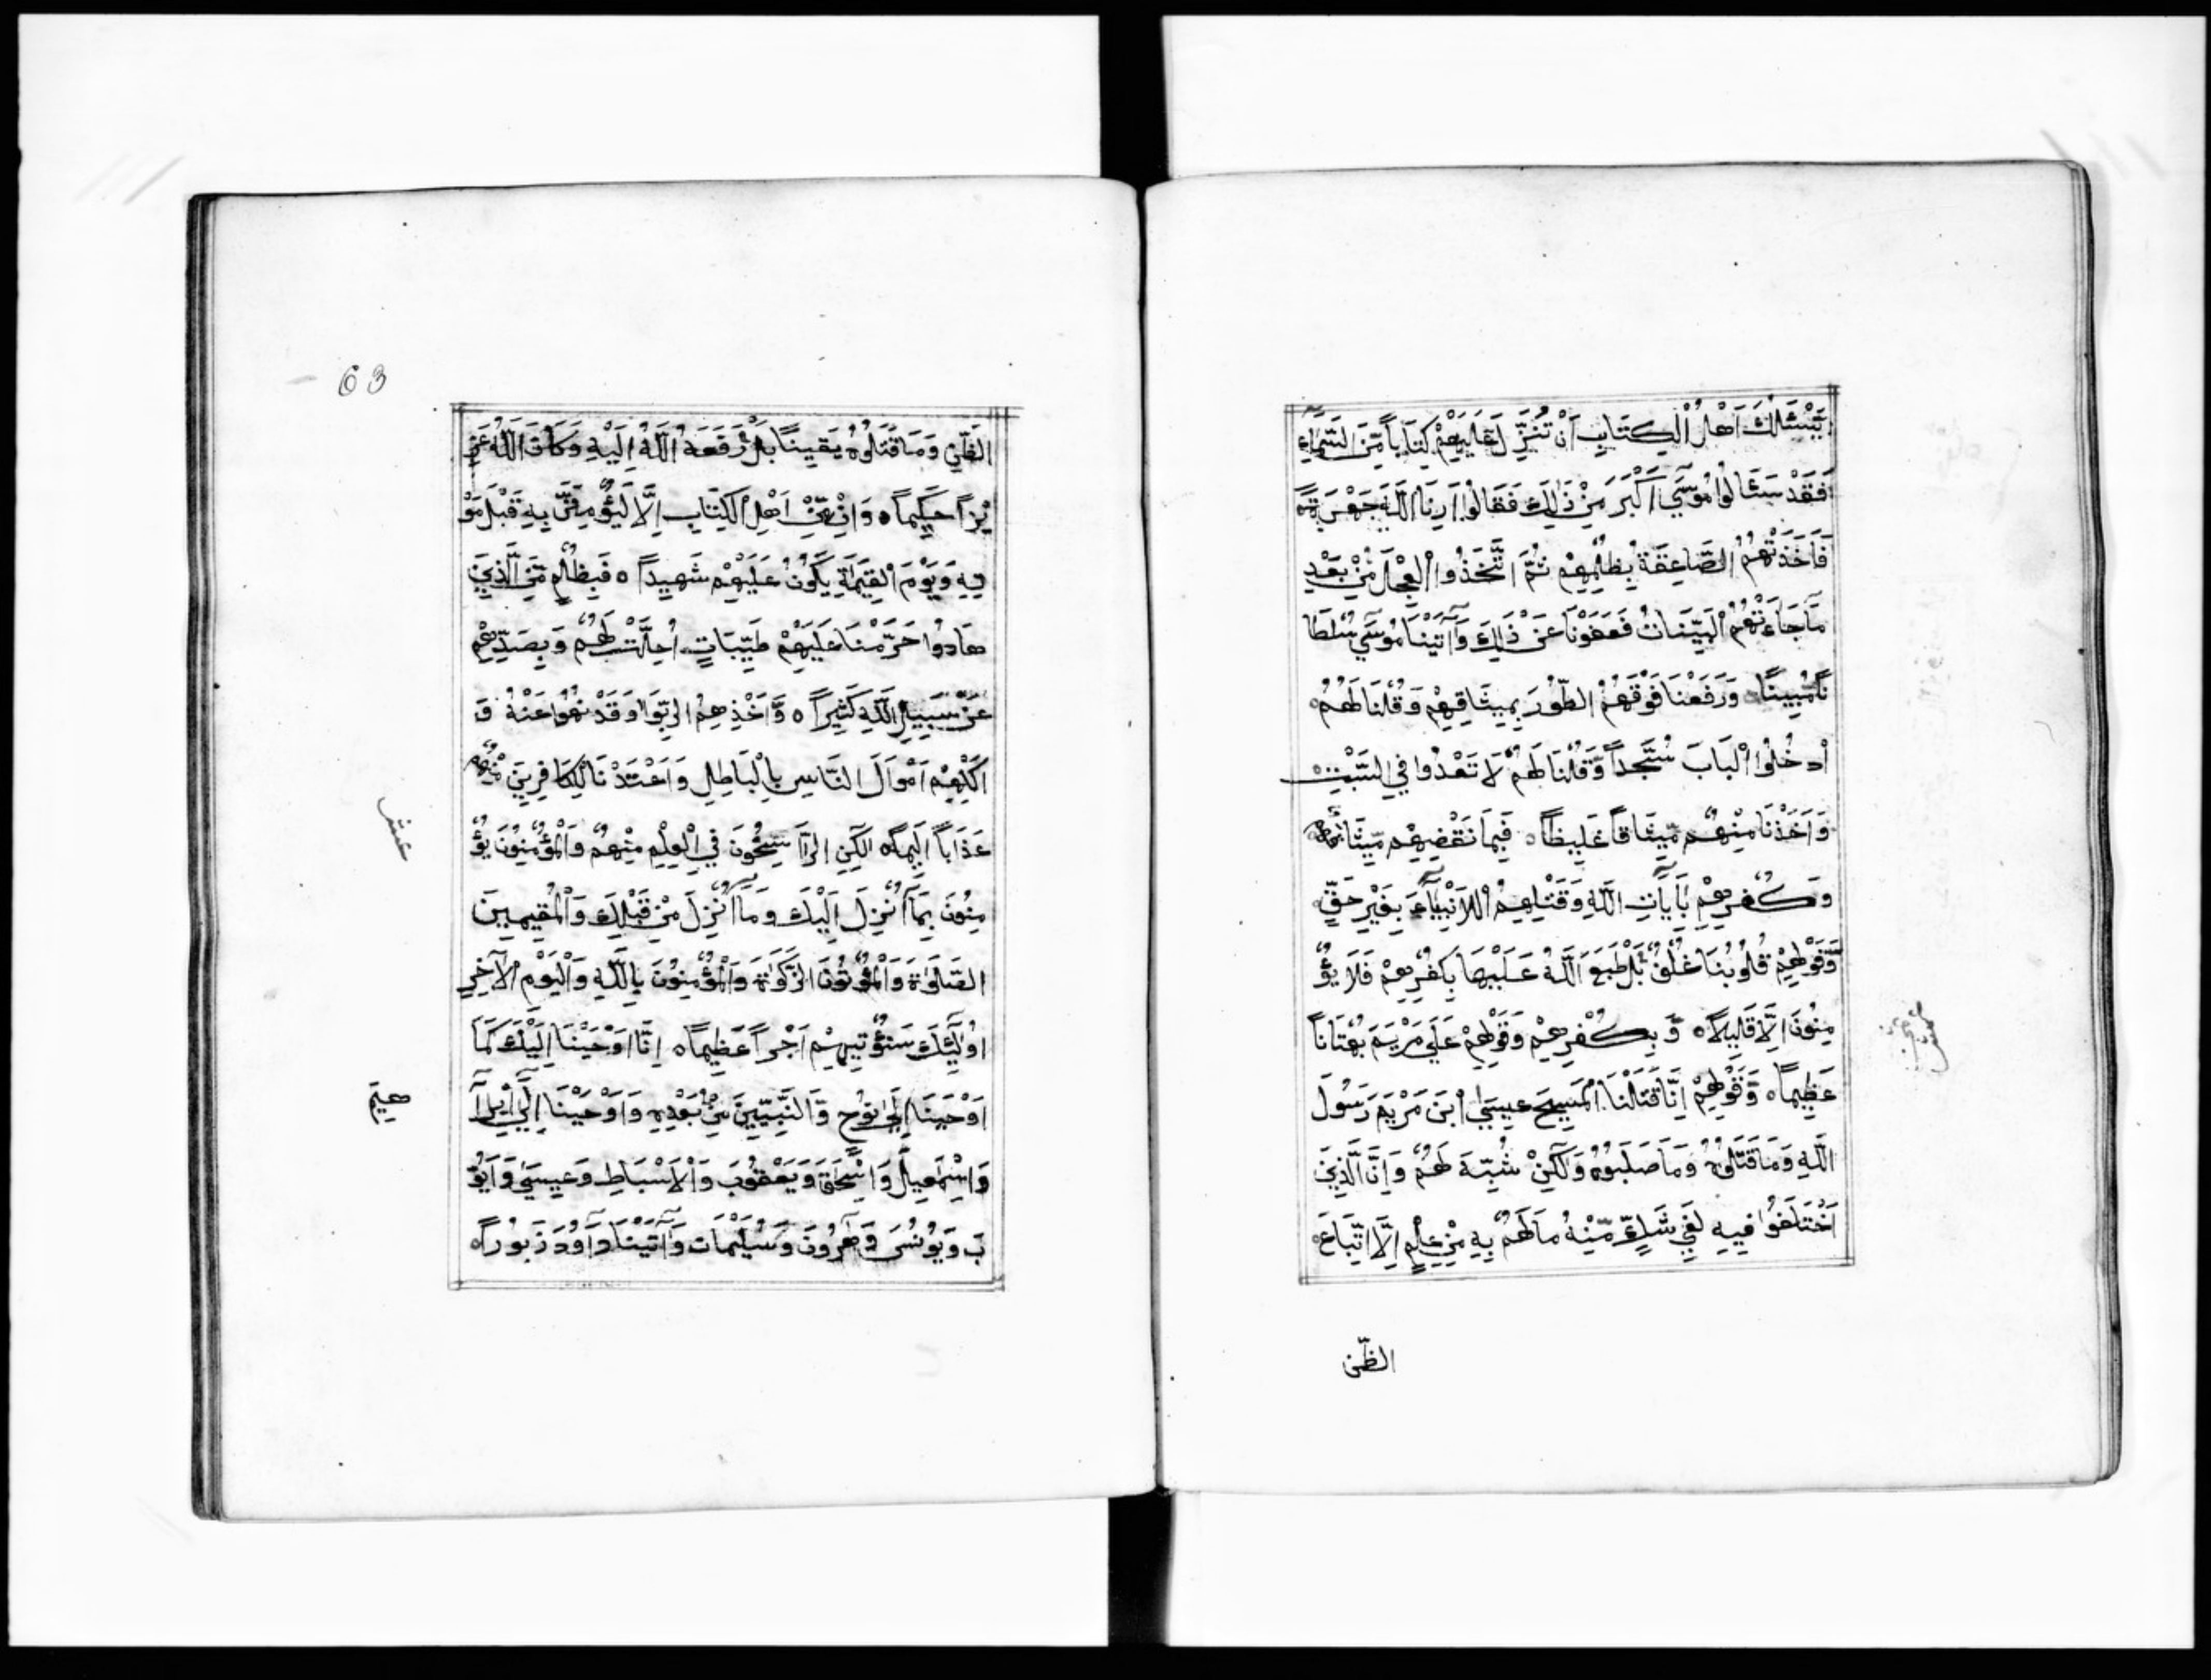 يَسْئَلُكَ اَهْلُ الْكِتَابِ اَنْ تُنَزِّلَ عَلَيْهِمْ كِتَاباً مِّنَ السَّمَآءِ
فَقَدْ سَئَالُوا مُوسَى اَكْبَرَ مِنْ ذٰلِكَ فَقَالُوا اَرِنَا اللَّهَ جَهْرَةً
فَاَخَذَتْهُمُ الصَّاعِقَةُ بِظُلْمِهِمْ ثُمَّ اتَّخَذُوا الْعِجْلَ مِنْ بَعْدِ
مَا جَاءَتْهُمُ الْبَيِّنَاتُ فَعَفَوْنَا عَنْ ذٰلِكَ وَآتَيْنَا مُوسَى سُلْطَا
نًا مُّبِينًا وَرَفَعْنَا فَوْقَهُمُ الطُّورَ بِمِيثَاقِهِمْ وَقُلْنَا لَهُمُ
ادْخُلُوا الْبَابَ سُجَّداً وَّقُلْنَا لَهُمْ لَا تَعْدُوا فِي السَّبْتِ
وَاَخَذْنَا مِنْهُمْ مِّيثَاقاً غَلِيظاً ه فَبِمَا نَقْضِهِمْ مِّيثَاقَهُمْ
وَكُفْرِهِمْ بِآيَاتِ اللَّهِ وَقَتْلِهِمُ الْاَنْبِيَآءَ بِغَيْرِ حَقٍّ
وَّقَوْلِهِمْ قُلُوبُنَا غُلْفٌ بَلْ طَبَعَ اللَّهُ عَلَيْهَا بِكُفْرِهِمْ فَلَا يُؤْ
مِنُونَ اِلَّا قَلِيلاً ه وَّبِكُفْرِهِمْ وَقَوْلِهِمْ عَلَى مَرْيَمَ بُهْتَاناً
عَظِيماً ه وَّقَوْلِهِمْ اِنَّا قَتَلْنَا الْمَسِيحَ عِيسَى ابْنَ مَرْيَمَ رَسُولَ
اللَّهِ وَمَا قَتَلُوهُ وَمَا صَلَبُوهُ وَلٰكِنْ شُبِّهَ لَهُمْ وَاِنَّ الَّذِينَ
اخْتَلَفُوا فِيهِ لَفِي شَكٍّ مِّنْهُ مَا لَهُمْ بِهِ مِنْ عِلْمٍ اِلَّا اتِّبَاعَ
عشر
الظّن
63
الظَّنِّ وَمَا قَتَلُوهُ يَقِينًا بَلْ رَّفَعَهُ اللَّهُ اِلَيْهِ وَكَانَ اللَّهُ عَزِ
يْزاً حَكِيماً ه وَاِنْ مِّنْ اَهْلِ الْكِتَابِ اِلَّا لَيُؤْمِنَنَّ بِهِ قَبْلَ مَوْ
تِهِ وَيَوْمَ الْقِيٰمَةِ يَكُونُ عَلَيْهِمْ شَهِيداً ه فَبِظُلْمٍ مِّنَ الَّذِينَ
هَادُوا حَرَّمْنَا عَلَيْهِمْ طَيِّبَاتٍ اُحِلَّتْ لَهُمْ وَبِصَدِّهِمْ
عَنْ سَبِيلِ اللَّهِ كَثِيراً ه وَّاَخْذِهِمُ الرِّبَوا وَقَدْ نُهُوا عَنْهُ وَ
اَكْلِهِمْ اَمْوَالَ النَّاسِ بِالْبَاطِلِ وَاَعْتَدْنَا لِلْكَافِرِينَ مِنْهُمْ
عَذَاباً اَلِيماً ه لٰكِنِ الرَّاسِخُونَ فِي الْعِلْمِ مِنْهُمْ وَالْمُؤْمِنُونَ يُؤْ
مِنُونَ بِمَآ اُنْزِلَ اِلَيْكَ وَمَآ اُنْزِلَ مِنْ قَبْلِكَ وَالْمُقِيمِينَ
الصَّلٰوةَ وَالْمُؤْتُونَ الزَّكَوٰةَ وَالْمُؤْمِنُونَ بِاللَّهِ وَالْيَوْمِ الْآخِرِ
اُولٰٓئِكَ سَنُؤْتِيهِمْ اَجْراً عَظِيماً ه اِنَّا اَوْحَيْنَا اِلَيْكَ كَمَا
اَوْحَيْنَا اِلَى نُوحٍ وَّالنَّبِيِّينَ مِنْ بَعْدِهِ وَاَوْحَيْنَا اِلَى اِبْرَا
هيم
وَاِسْمٰعِيلَ وَاِسْحٰقَ وَيَعْقُوبَ وَالْاَسْبَاطِ وَعِيسَى وَاَيُّو
بَ وَيُونُسَ وَهٰرُونَ وَسُلَيْمَانَ وَآتَيْنَا دَاوُدَ زَبُوراً ه
عشر